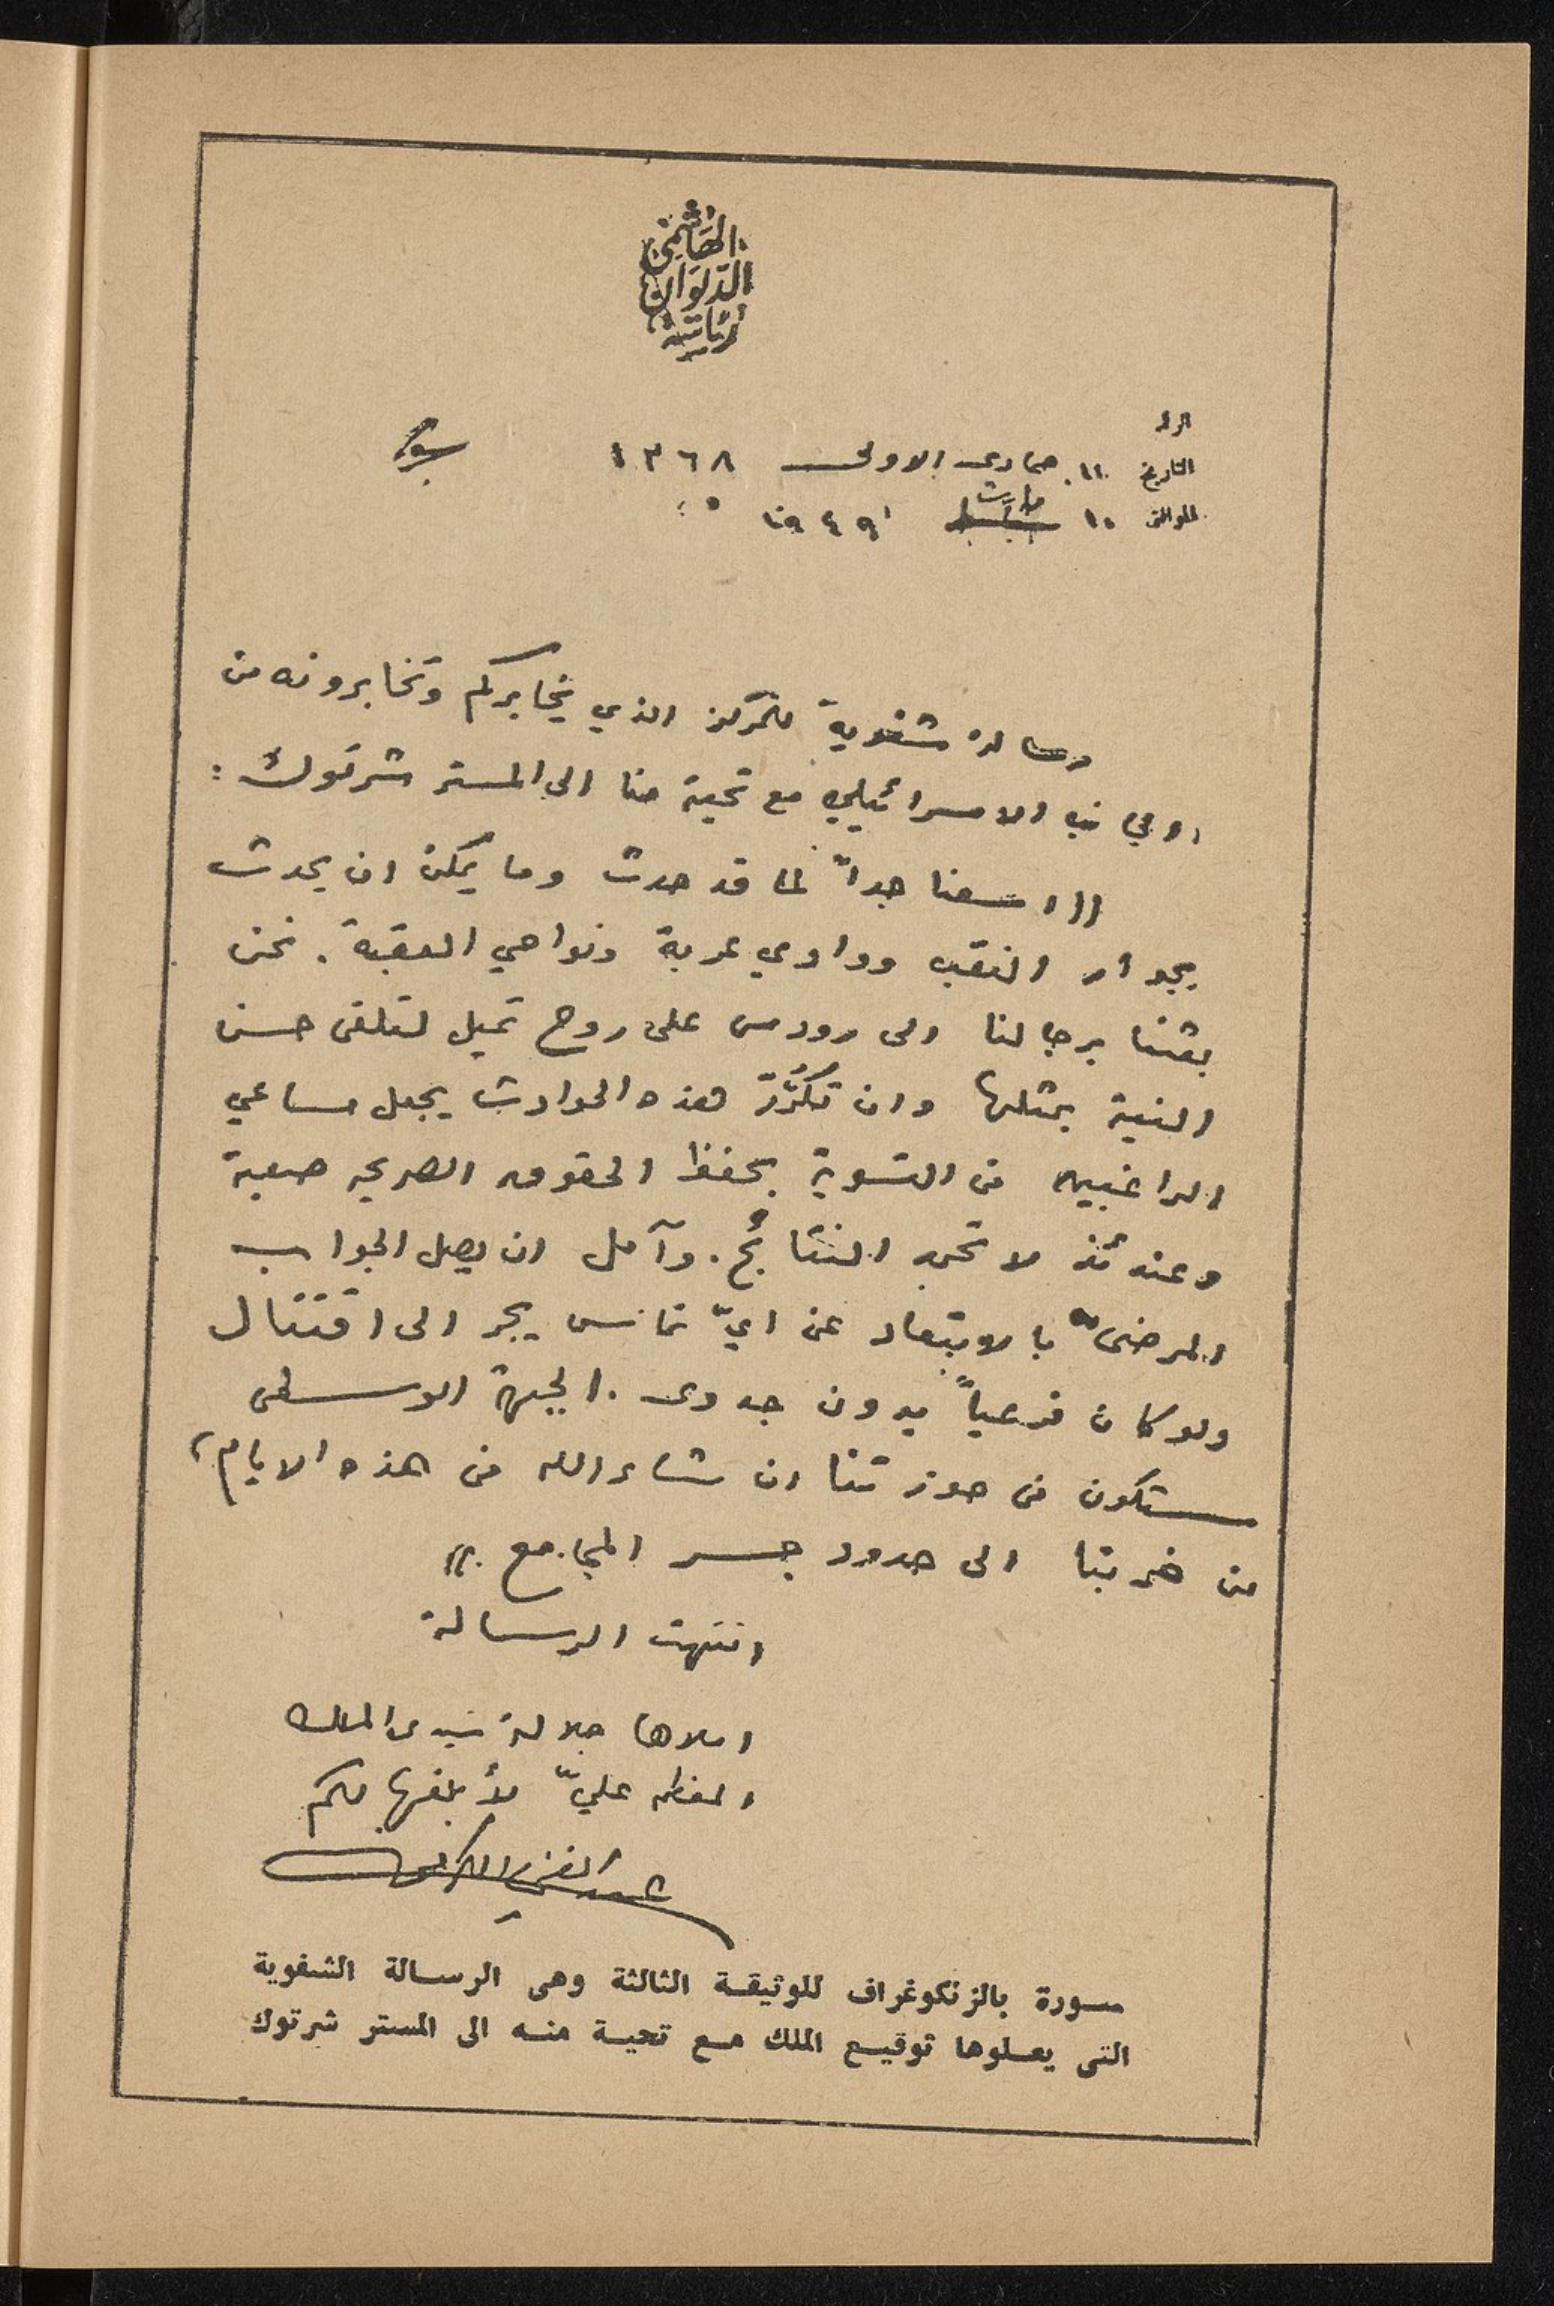 رئاسة
الديوان
الهاشمي
الرقم
التاريخ ١١ جمادى الاولى ١٣٦٨
الموافق ١٠ شباط مارت ١٩٤٩
رسالة شفوية للمركز الذي يخابركم وتخابرونه من
الجانب الاسرائيلي مع تحية منا الى المستر شرتوك :
(( اسفنا جداً لما قد حدث وما يمكن ان يحدث
بجوار النقب ووادي عربة ونواحي العقبة . نحن
بعثنا برجالنا الى رودس على روح تميل لتلقى حسن
النية بمثلها وان تكرُّرَ هذه الحوادث يجعل مساعي
الراغبين في التسوية بحفظ الحقوق الصريحه صعبة
وعندئذ لا تحمد النتائج . وآمل ان يصل الجواب
المرضى بالابتعاد عن ايّ تماس يجر الى اقتتال
ولو كان فرعياً بدون جدوى . الجبهة الوسطى
ستكون في حوزتنا ان شاء الله في هذه الايام ،
من ضربتا الى حدود جسر المجامع . ))
انتهت الرسالة
املاها جلالة سيدى الملك
المعظم عليّ لأبلغها لكم
عبد الغني الكرمي
صورة بالزنكوغراف للوثيقة الثالثة وهى الرسالة الشفوية
التى يعلوها توقيع الملك مع تحية منه الى المستر شرتوك